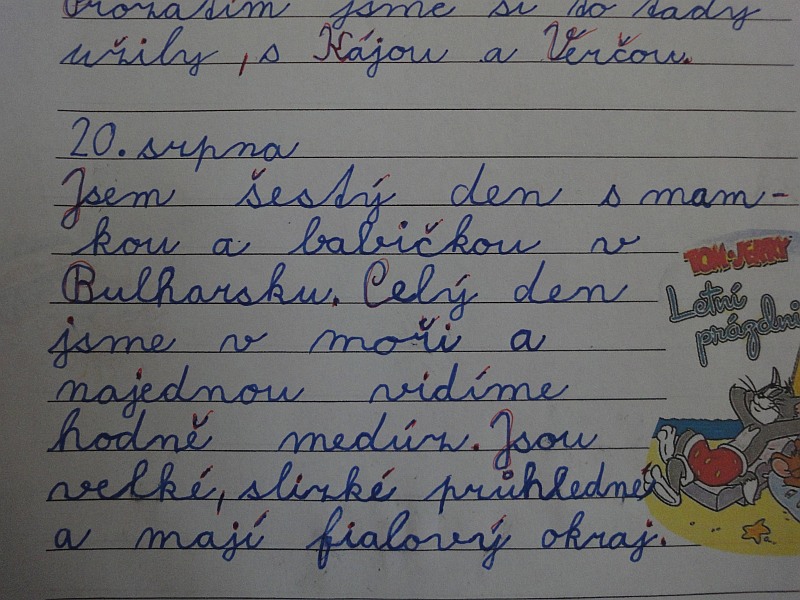 Prozatím jsme si to tady
užily, s Kájou a Věrčou.
20. srpna
Jsem šestý den s mam-
kou a babičkou v
Bulharsku. Celý den
jsme v moři a
najednou vidíme
hodně medúz. Jsou
velké, slizké průhledné
a mají fialový okraj.
TOM and JERRY
Letní
prázdni